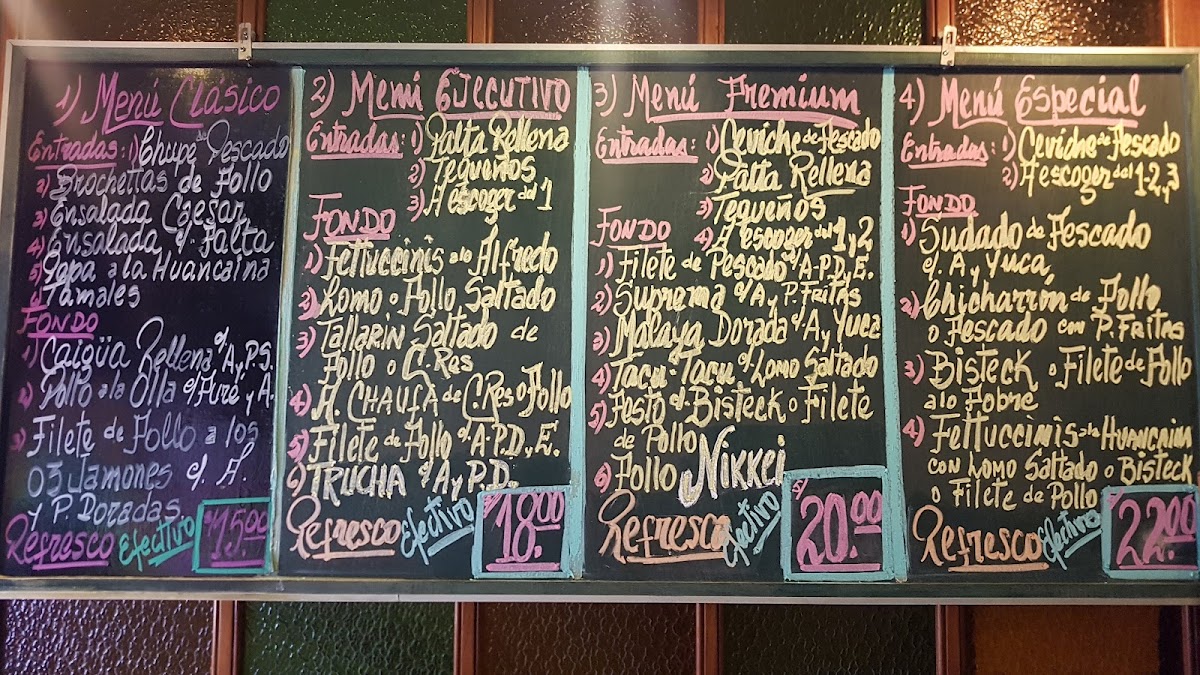 1) Menú Clásico
Entradas: 1) Chupe de Pescado
2) Brochettas de Pollo
3) Ensalada Caesar
4) Ensalada c/. Palta
5) Papa a la Huancaina
6) Tamales
FONDO
1) Caigüa Rellena c/A, P.S.
2) Pollo a la Olla c/Puré y A.
3) Filete de Pollo a los
03 Jamones c/. A.
y P. Doradas
Refresco Efectivo 15.00
2) Menú EJECUTIVO
Entradas: 1) Palta Rellena
2) Tequeños
3) A escoger del 1
FONDO
1) Fettuccinis a lo Alfredo
2) Lomo o Pollo Saltado
3) Tallarin Saltado de
Pollo o C. Res
4) A. CHAUFA de C. Res o Pollo
5) Filete de Pollo c/. A-P.D, E.
6) TRUCHA c/A y P.D.
Refresco Efectivo 18.00
3) Menú Premium
Entradas: 1) Ceviche de Pescado
2) Palta Rellena
3) Tequeños
4) A escoger del 1 y 2
FONDO
1) Filete de Pescado c/A-P.D, E.
2) Suprema c/A y P. Fritas
3) Malaya Dorada c/A y Yuca
4) Tacu-Tacu c/Lomo Saltado
5) Pesto c/. Bisteck o Filete
de Pollo
6) Pollo Nikkei
Refresco Efectivo S/ 20.00
4) Menú Especial
Entradas: 1) Ceviche de Pescado
2) A escoger del 1-2, 3
FONDO
1) Sudado de Pescado
c/. A y Yuca,
2) Chicharrón de Pollo
o Pescado con P. Fritas
3) Bisteck o Filete de Pollo
a lo Pobre
4) Fettuccinis a la Huancaina
con Lomo Saltado o Bisteck
o Filete de Pollo
Refresco Efectivo 22.00